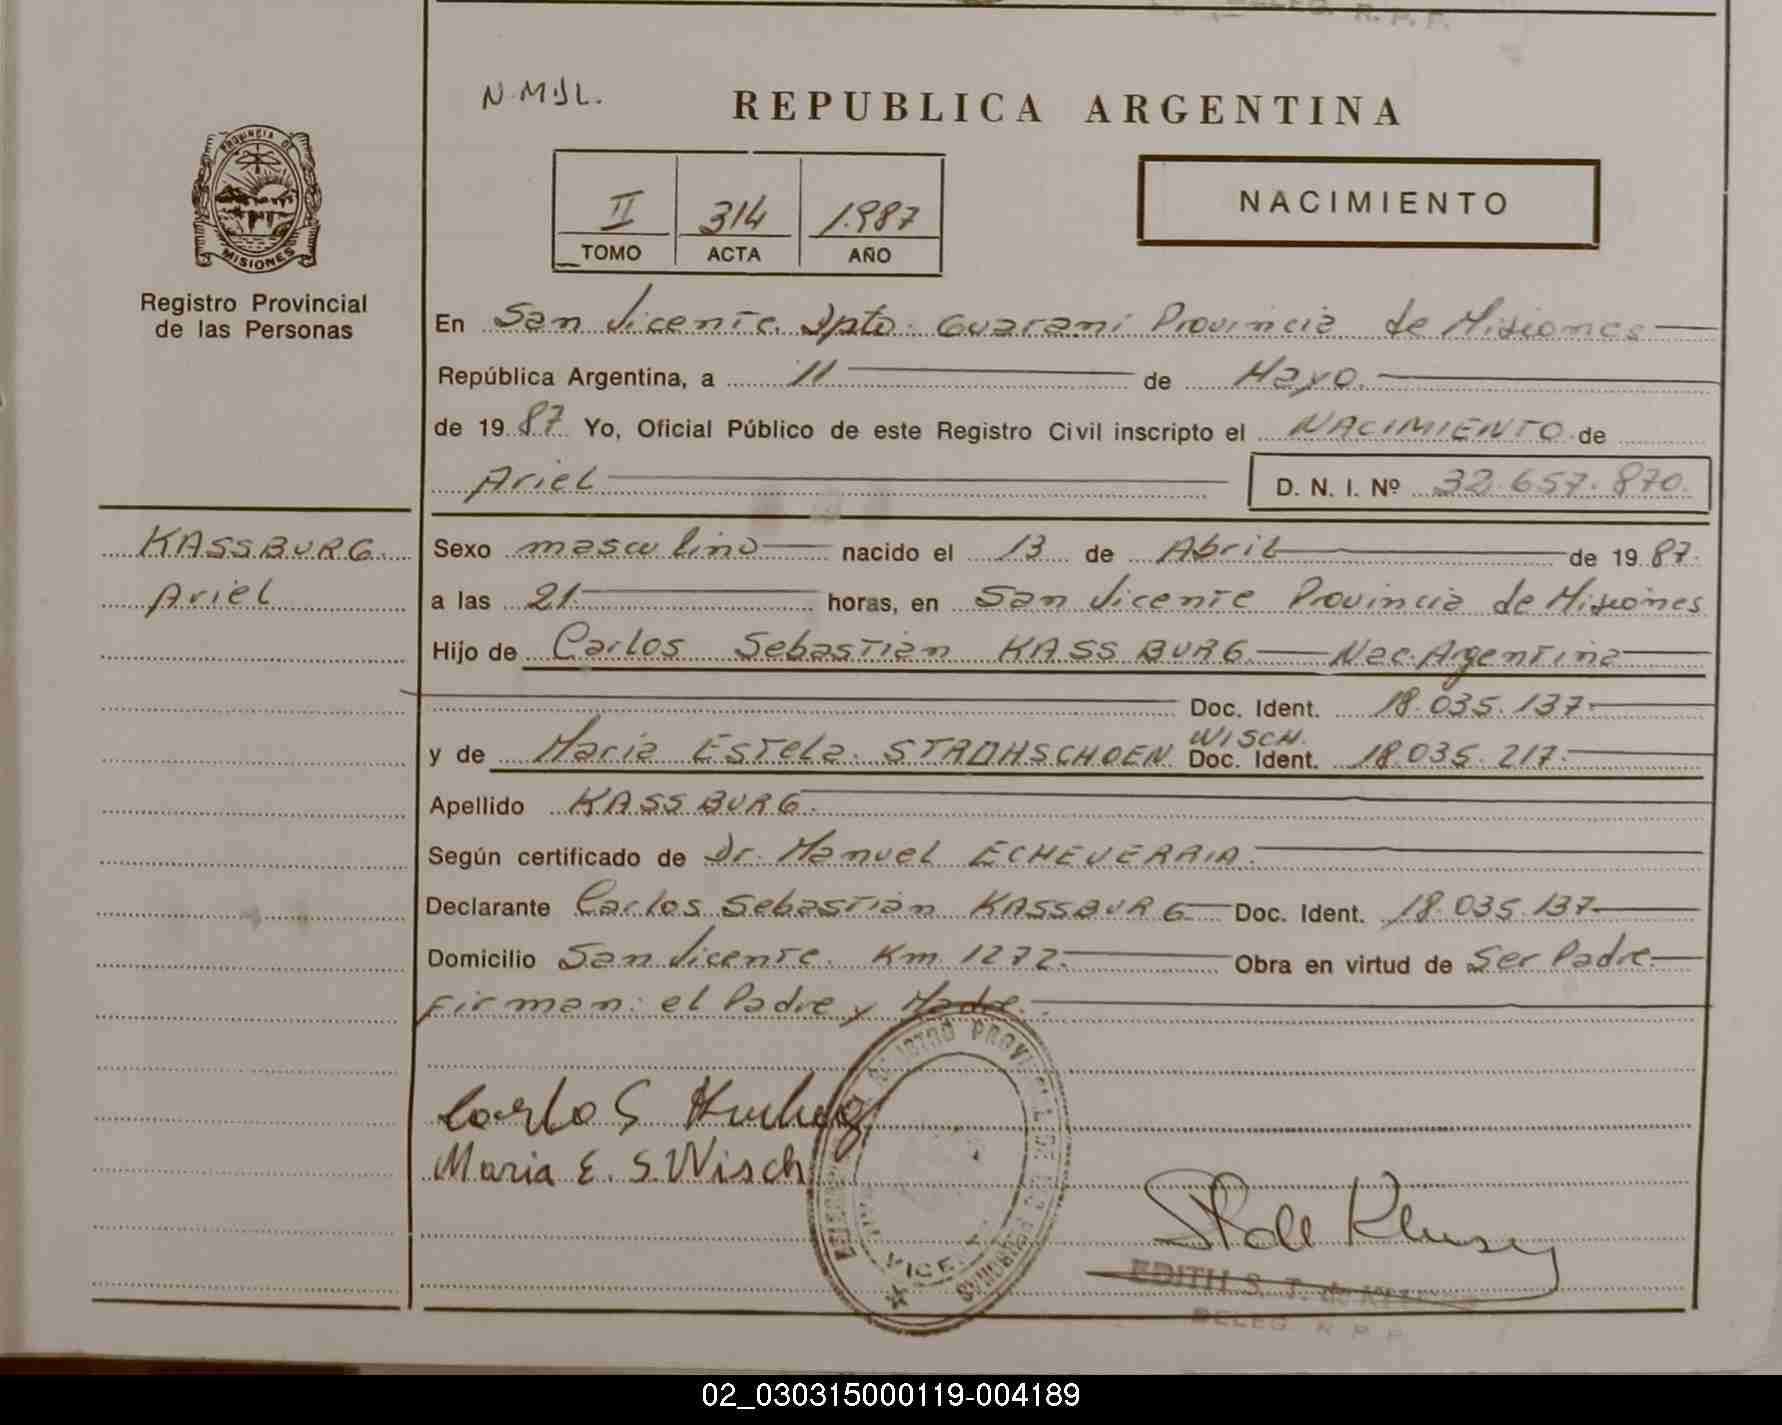 N.M.J.L.
REPUBLICA ARGENTINA
PROVINCIA DE
MISIONES
Registro Provincial
de las Personas
II 314 1.987
TOMO ACTA AÑO
NACIMIENTO
En San Vicente Dpto. Guarani Provincia de Misiones
República Argentina, a 11 de Mayo.
de 1987 Yo, Oficial Público de este Registro Civil inscripto el NACIMIENTO de
Ariel D. N. I. Nº 32.657.870.
KASSBURG
Ariel
Sexo masculino nacido el 13 de Abril de 1987.
a las 21. horas, en San Vicente Provincia de Misiones
Hijo de Carlos Sebastián KASSBURG Nac. Argentina
Doc. Ident. 18.035.137
WISCH.
y de Maria Estela STROHSCHOEN Doc. Ident. 18.035.217.
Apellido KASSBURG.
Según certificado de Dr. Manuel ECHEVERRIA.
Declarante Carlos Sebastián KASSBURG Doc. Ident. 18.035.137
Domicilio San Vicente. Km 1272. Obra en virtud de Ser Padre
Firman: el Padre y Madre.
Carlos
Maria E. S. Wisch
EDITH S.
DELEG. R. P. P.
02_030315000119-004189